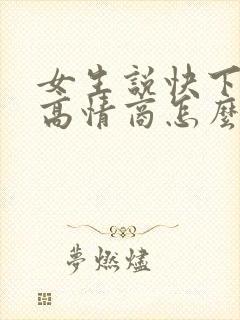 女生說快下
高情商怎麼
夢燃燼